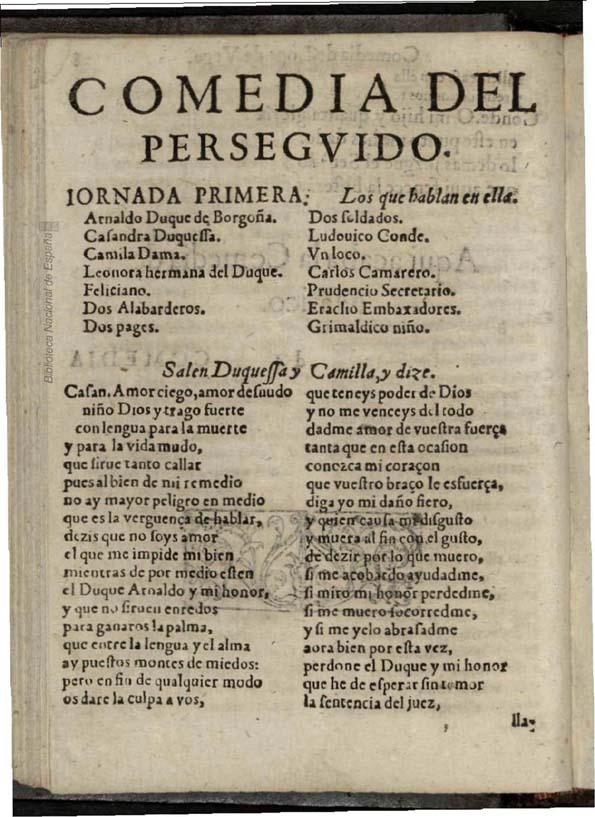 COMEDIA DEL
PERSEGVIDO.
IORNADA PRIMERA. Los que hablan en ella.
Arnaldo Duque de Borgoña.
Casandra Duquessa.
Camila Dama.
Leonora hermana del Duque.
Feliciano.
Dos Alabarderos.
Dos pages.
Dos soldados.
Ludouico Conde.
Vn loco.
Carlos Camarero.
Prudencio Secretario.
Eraclio Embaxadores.
Grimaldico niño.
Salen Duquessa y Camilla, y dize.
Casan. Amor ciego, amor desnudo
niño Dios y trago fuerte
con lengua para la muerte
y para la vida mudo,
que sirue tanto callar
pues al bien de mi remedio
no ay mayor peligro en medio
que es la verguença de hablar,
dezis que no soys amor
el que me impide mi bien
mientras de por medio esten
el Duque Arnaldo y mi honor,
y que no siruen enredos
para ganaros la palma,
que entre la lengua y el alma
ay puestos montes de miedos:
pero en fin de qualquier modo
os dare la culpa a vos,
que teneys poder de Dios
y no me venceys del todo
dadme amor de vuestra fuerça
tanta que en esta ocasion
conozca mi coraçon
que vuestro braço le esfuerça,
diga yo mi daño fiero,
y quien causa mi disgusto
y muera al fin con el gusto,
de dezir por lo que muero,
si me acobardo ayudadme,
si miro mi honor perdedme,
si me muero socorredme,
y si me yelo abrasadme
aora bien por esta vez,
perdone el Duque y mi honor
que he de esperar sin temor
la sentencia del juez,
lla-
Biblioteca Nacional de España